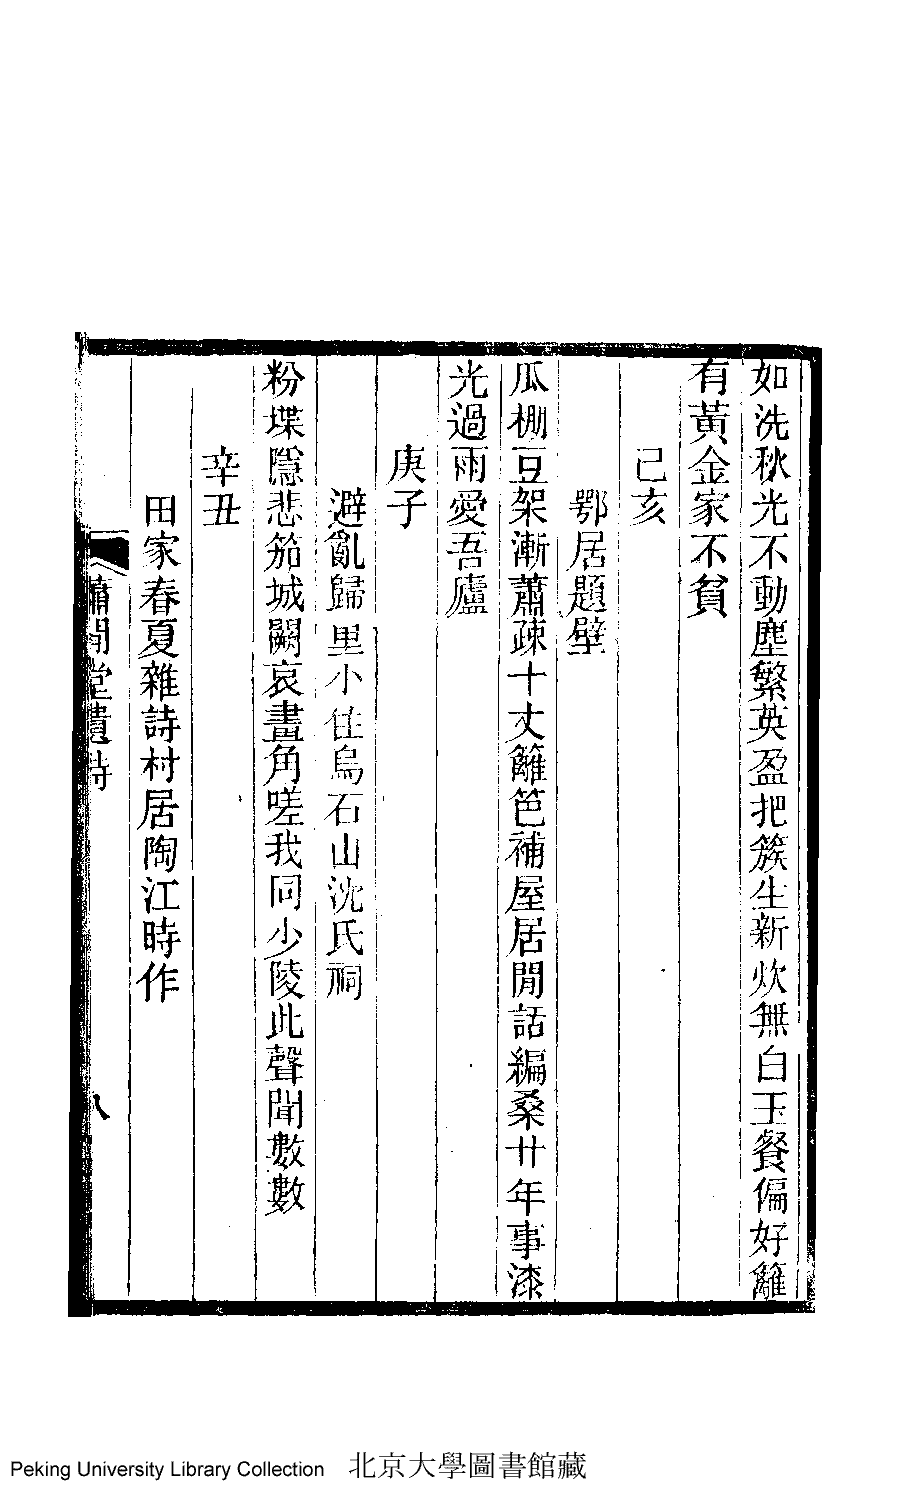 如洗秋光不動塵繁英盈把簇生新炊無白玉餐偏好籬
有黃金家不貧
己亥
鄂居題壁
瓜棚豆架漸蕭疎十丈籬笆補屋居閒話編桑廿年事漆
光過雨愛吾廬
庚子
避亂歸里小住烏石山沈氏祠
粉堞隱悲笳城闕哀畫角嗟我同少陵此聲聞數數
辛丑
田家春夏雜詩村居陶江時作
堂遺詩
八
Peking University Library Collection 北京大學圖書館藏